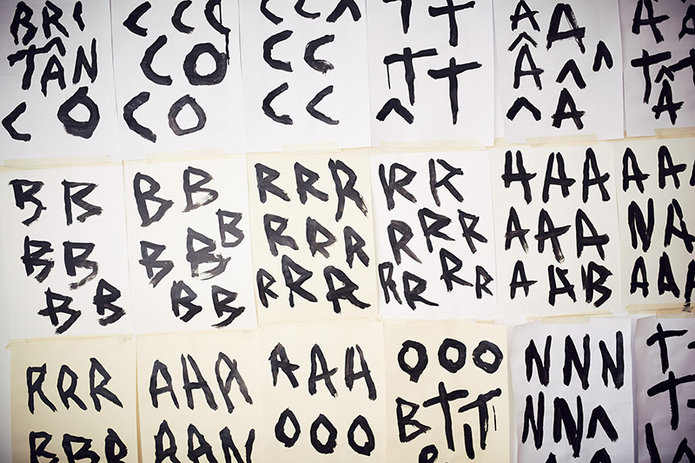 BRI
TÂN
C O
C C
C O
C O
C C ^
C C
C C
T T
T T
^ T
A Â
Â ^ ^
^ Â
A
T T
Â
B B
B B
B B
B B
B B B
B B
R R R
R R R
R R R
R R
R R R
R R R R
A A A
A A A
A A B
A A
N A
A A
R R R
B B R
A A A
A A N
A A A
O O O
O O O
B T I T
N N N
N N ^
T
T T